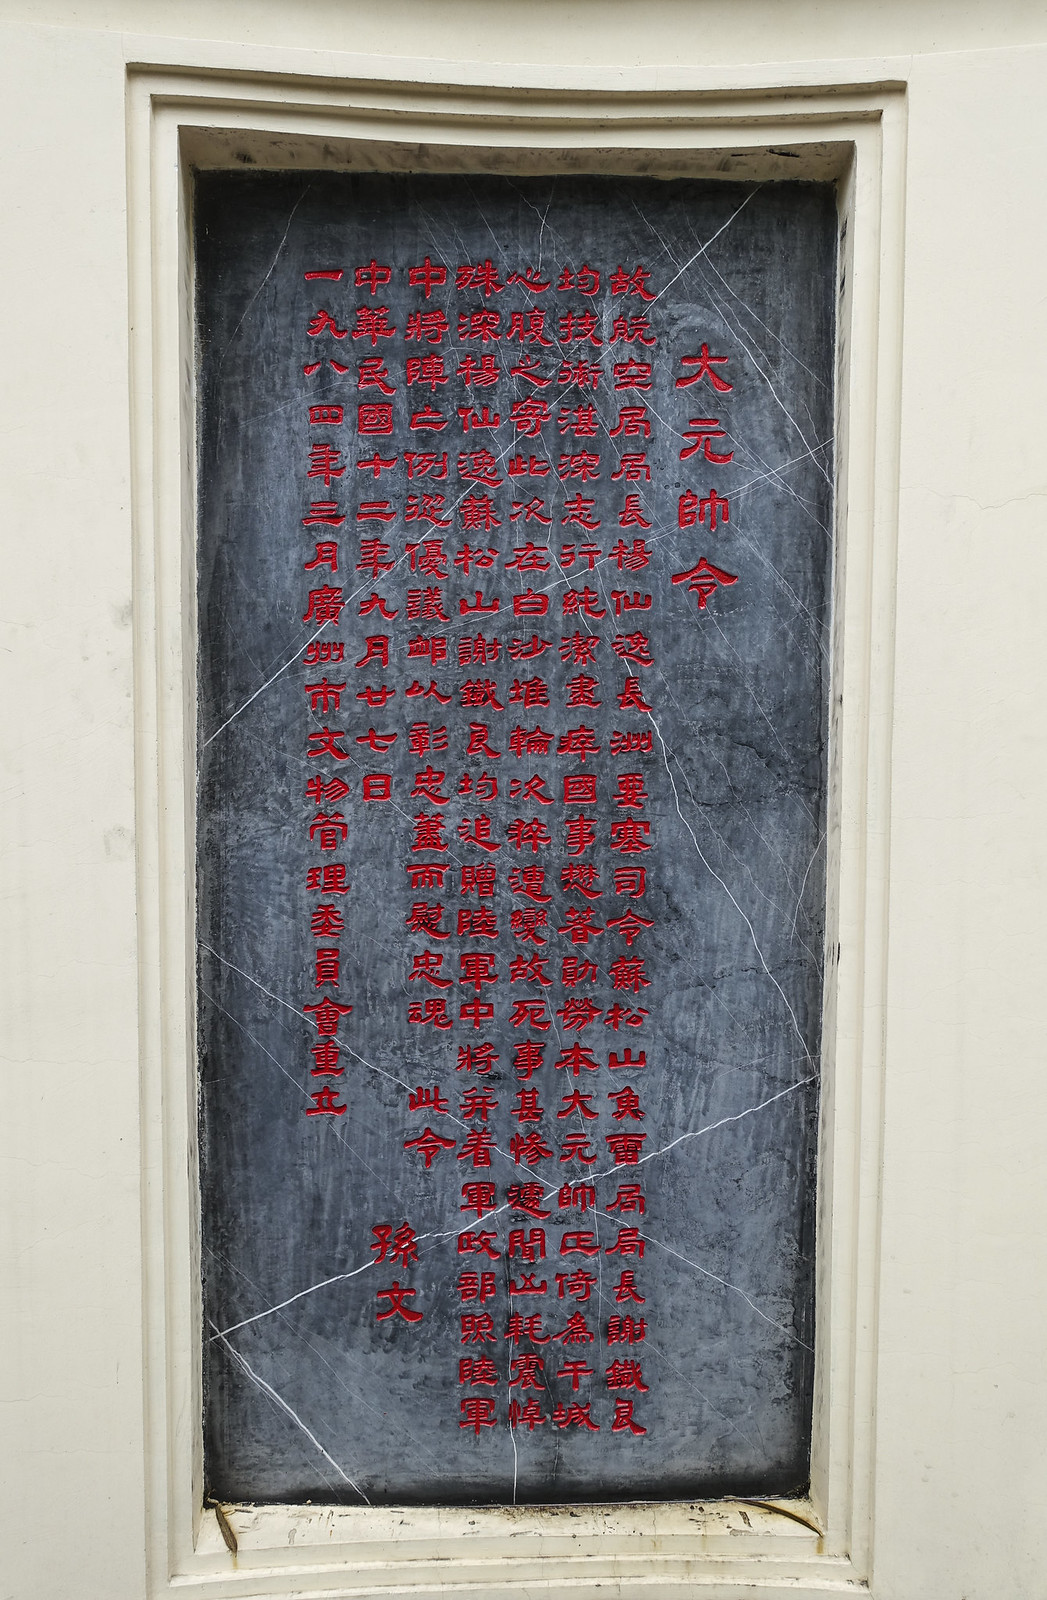 大元帥令
故航空局局長楊仙逸長洲要塞司令蘇松山魚雷局局長謝鐵良
均技術湛深志行純潔盡瘁國事懋著勛勞本大元帥正倚為干城
心腹之寄此次在白沙堆輪次猝遭變故死事甚慘遽聞凶耗震悼
殊深楊仙逸蘇松山謝鐵良均追贈陸軍中將并着軍政部照陸軍
中將陣亡例從優議卹以彰忠藎而慰忠魂 此令
孫文
中華民國十二年九月廿七日
一九八四年三月廣州市文物管理委員會重立